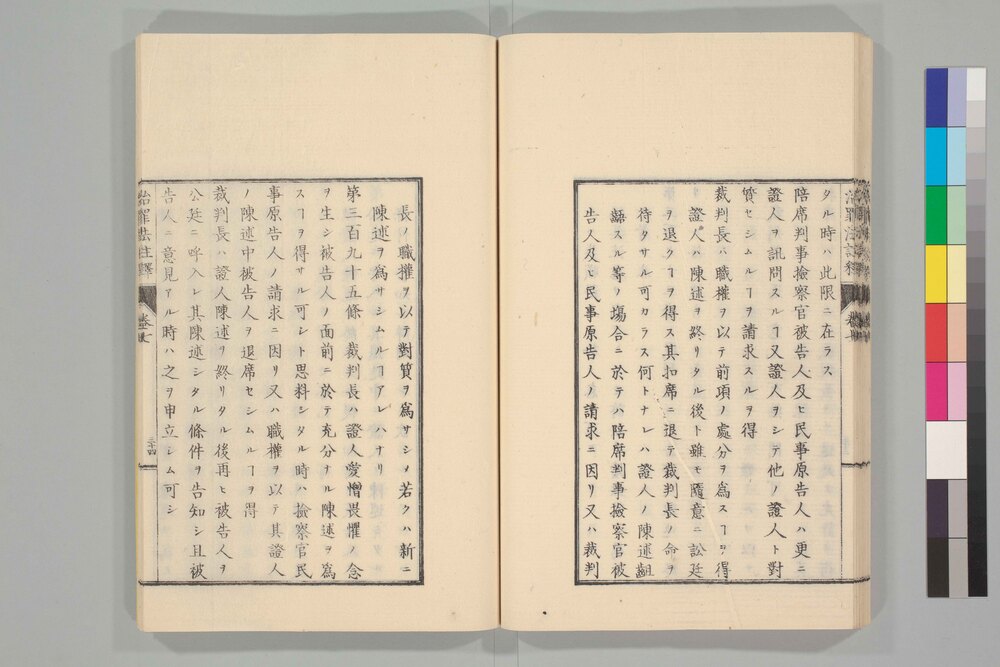 治罪法註釋
タル時ハ此限ニ在ラス
陪席判事撿察官被告人及ヒ民事原告人ハ更ニ
證人ヲ訊問スルヿ又證人ヲシテ他ノ證人ト對
質セシムルヿヲ請求スルヲ得
裁判長ハ職權ヲ以テ前項ノ處分ヲ爲スヿヲ得
證人ハ陳述ヲ終リタル後ト雖モ隨意ニ訟廷
ヲ退クヿヲ得ス其扣席ニ退テ裁判長ノ命ヲ
待タサル可カラス何トナレハ證人ノ陳述齟
齬スル等ノ塲合ニ於テハ陪席判事撿察官被
告人及ヒ民事原告人ノ請求ニ因リ又ハ裁判
長ノ職權ヲ以テ對質ヲ爲サシメ若クハ新ニ
陳述ヲ爲サシムルヿアレハナリ
第三百九十五條 裁判長ハ證人愛憎畏懼ノ念
ヲ生シ被告人ノ面前ニ於テ充分ナル陳述ヲ爲
スヿヲ得サル可シト思料シタル時ハ撿察官民
事原告人ノ請求ニ因リ又ハ職權ヲ以テ其證人
ノ陳述中被告人ヲ退席セシムルヿヲ得
裁判長ハ證人陳述ヲ終リタル後再ヒ被告人ヲ
公廷ニ呼入レ其陳述シタル條件ヲ告知シ且被
告人ニ意見アル時ハ之ヲ申立シム可シ
治罪法註釋
三十四